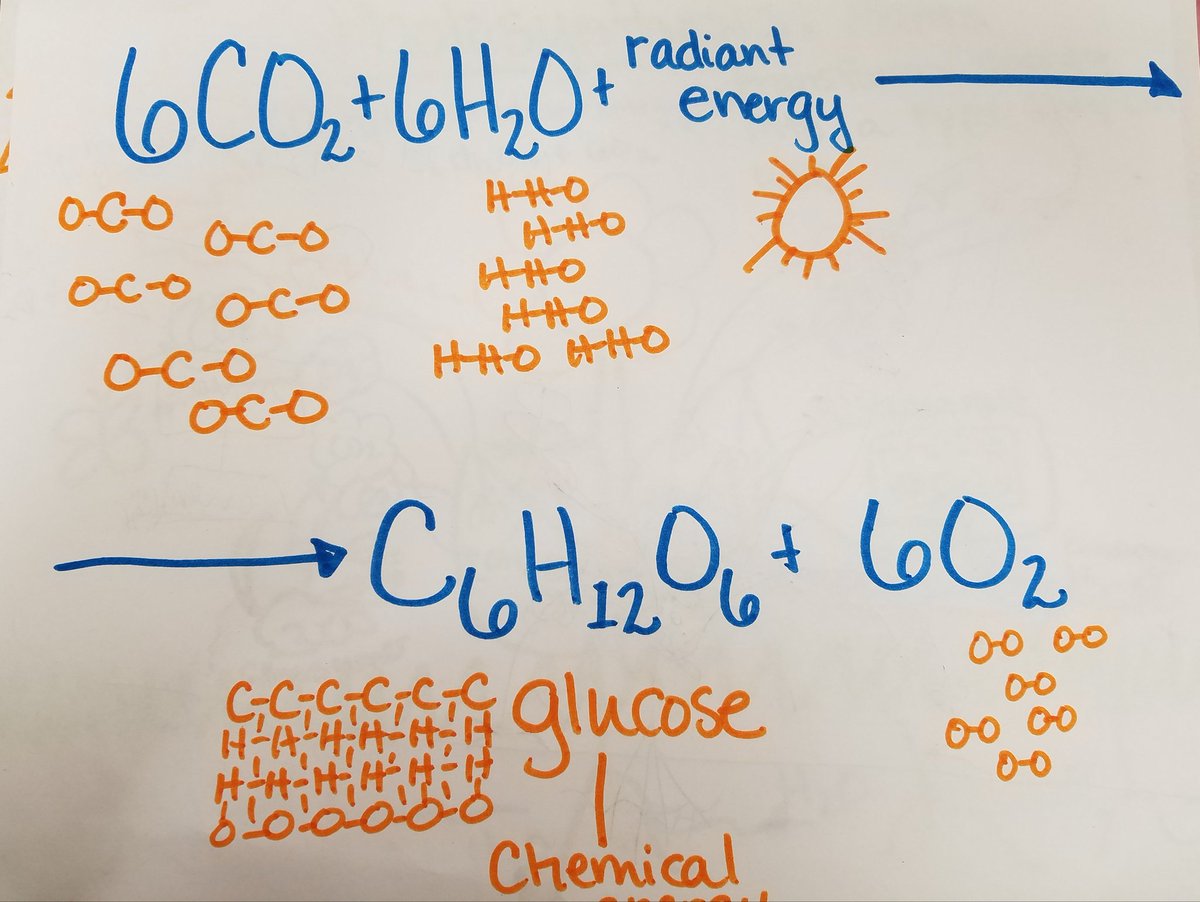 6CO₂+6H₂O+ radiant energy →
O-C-O O-C-O
O-C-O O-C-O
O-C-O
O-C-O
H-H-O
H-H-O
H-H-O
H-H-O
H-H-O H-H-O
→ C₆H₁₂O₆ + 6O₂
C-C-C-C-C-C
H-H-H-H-H-H
H-H-H-H-H-H
O-O-O-O-O-O
glucose
Chemical
energy
O-O O-O
O-O
O-O O-O
O-O